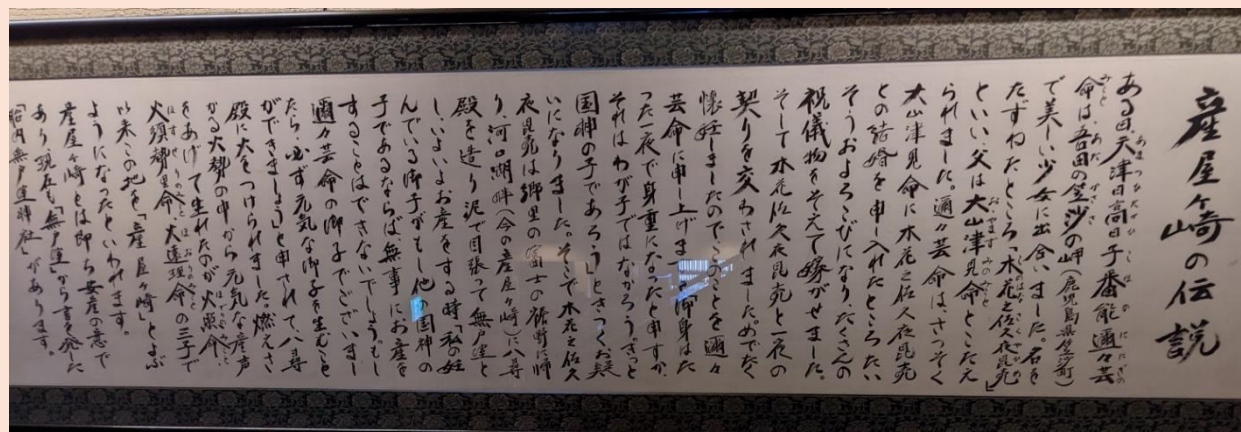 産屋ヶ崎の伝説
ある日、天津日高日子番能邇々芸
命は、吾田の笠沙の岬(鹿児島県笠沙町)
で美しい少女に出合いました。名を
たずねたところ「木花之佐久夜毘売」
といい、父は大山津見命とこたえ
られました。邇々芸命は、さっそく
大山津見命に木花之佐久夜毘売
との結婚を申し入れたところたい
そうおよろこびになり、たくさんの
祝儀物をそえて嫁がせました。
そして木花佐久夜毘売と一夜の
契りを交わされました。めでたく
懐妊しましたので、このことを邇々
芸命に申し上げますと「御身はた
った一夜で身重になったと申すか、
それはわが子ではなかろう。きっと
国神の子であろう」ときつくお疑
いになりました。そこで木花之佐久
夜毘売は郷里の富士の裾野に帰
り、河口湖畔(今の産屋ヶ崎に)八尋
殿を造り泥で目張って無戸室と
し、いよいよお産をする時「私の妊
んでいる御子がもし他の国神の
子であるならば、無事にお産を
することはできないでしょう。もし
邇々芸命の御子でございまし
たら、必ず元気な御子を生むこと
ができましょう」と申されて、八尋
殿に火をつけられました。燃えさ
かる火勢の中から元気な産声
をあげて生れたのが火照命、
火須勢理命、火遠理命の三子で
以来この地を「産屋ヶ崎」とよぶ
ようになったといわれます。
産屋ヶ崎とは即ち安産の意で
あり、現在も「無戸室」から言を発した
「胎内無戸室神社」があります。